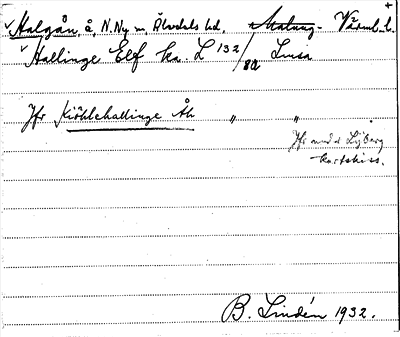 Halgån å, N. Ny sn, Älvdals hd, Malung. Värml. l.
Hallinge Elf ka. L 132/82 Lmsa
Jfr Kiöhlehallinge Åh " " .
Jfr med
kartskiss.
B. Lindén 1932.